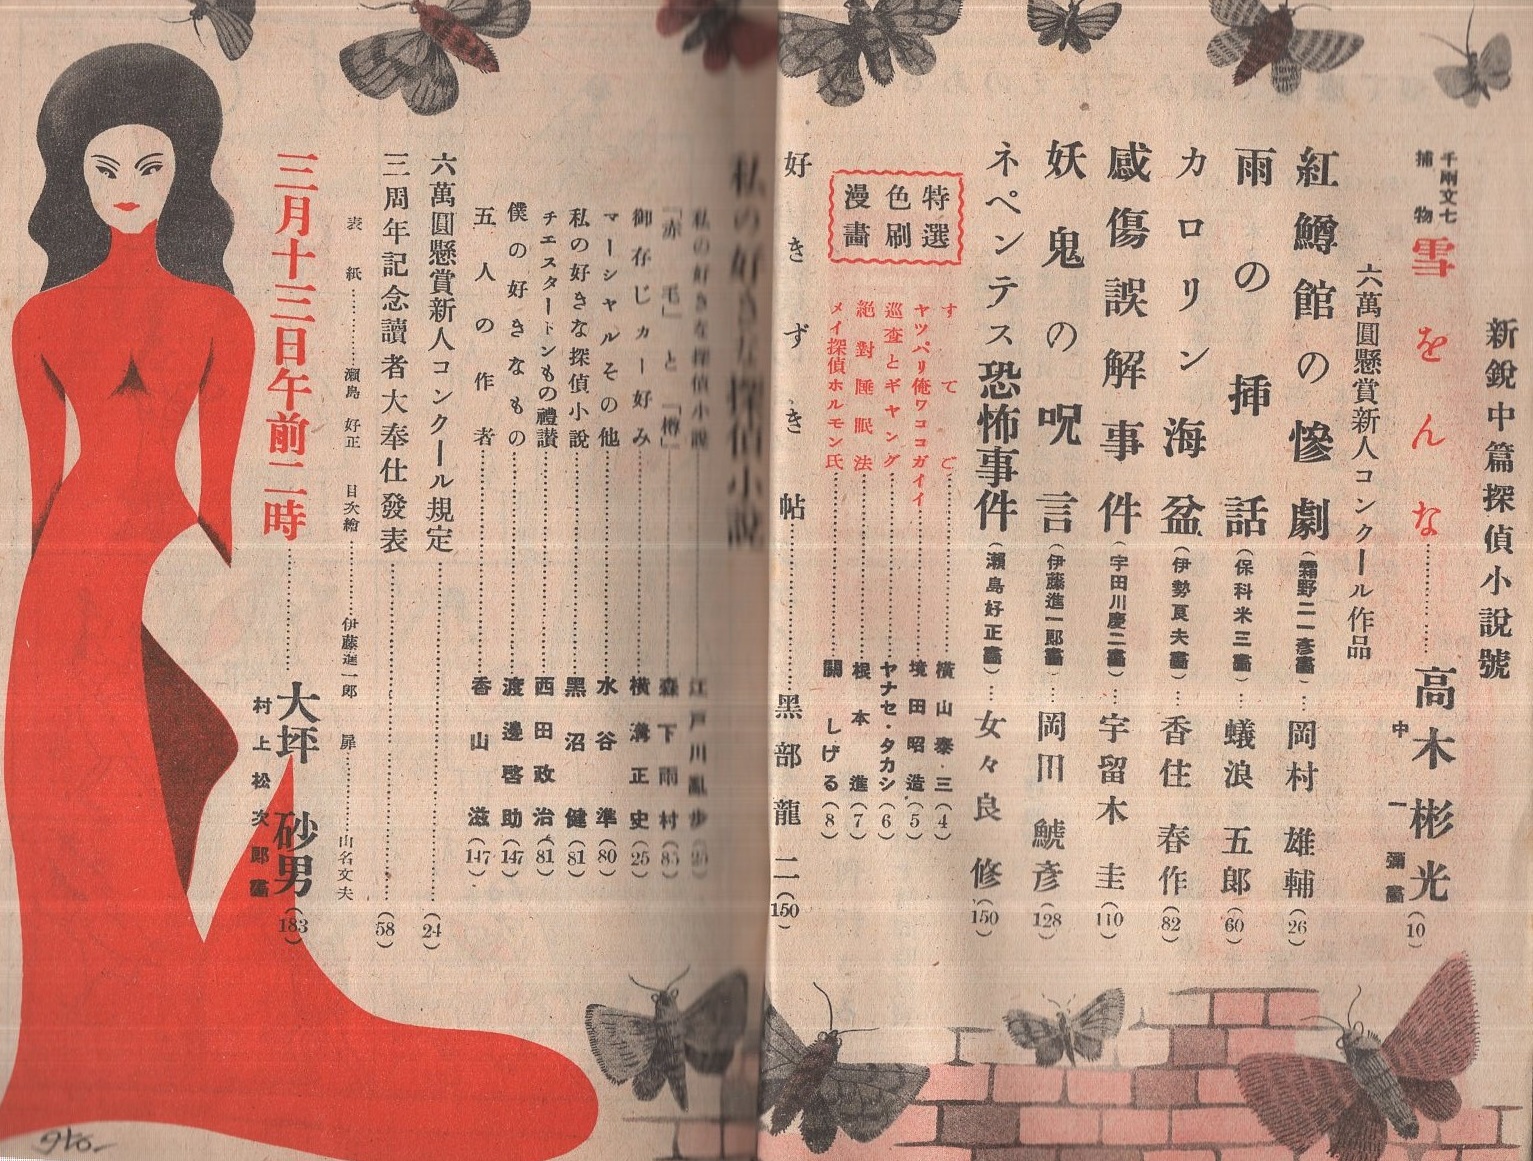 新銳中篇探偵小說號
千兩文七捕物 雪をんな 高木彬光 (10)
中一彌畵
六萬圓懸賞新人コンクール作品
紅鱒館の慘劇 (霜野二一彦畵) 岡村雄輔 (26)
雨の挿話 (保科米三畵) 蟻浪五郎 (60)
カロリン海盆 (伊勢良夫畵) 香住春作 (82)
感傷誤解事件 (宇田川慶二畵) 宇留木圭 (110)
妖鬼の呪言 (伊藤進一郞畵) 岡田鯱彦 (128)
ネペンテス恐怖事件 (瀨島好正畵) 女々良修 (150)
特選色刷漫畵
すてご 橫山泰三 (4)
ヤツパリ俺ワココガイイ 境田昭造 (5)
巡査とギヤング ヤナセ・タカシ (6)
絕對睡眠法 根本進 (7)
メイ探偵ホルモン氏 關しげる (8)
好きずき帖 黑部龍二 (150)
私の好きな探偵小說
私の好きな探偵小說 江戶川亂步
「赤毛」と「樽」 森下雨村
御存じカー好み 橫溝正史 (25)
マーシャルその他 水谷準 (80)
私の好きな探偵小說 黑沼健 (81)
チエスタートンもの禮讃 西田政治 (81)
僕の好きなもの 渡邊啓助 (147)
五人の作者 香山滋 (147)
六萬圓懸賞新人コンクール規定 (24)
三周年記念讀者大奉仕發表 (58)
表紙 瀨島好正 目次繪 伊藤進一郞 扉 山名文夫
三月十三日午前二時 大坪砂男 (183)
村上松次郞畵